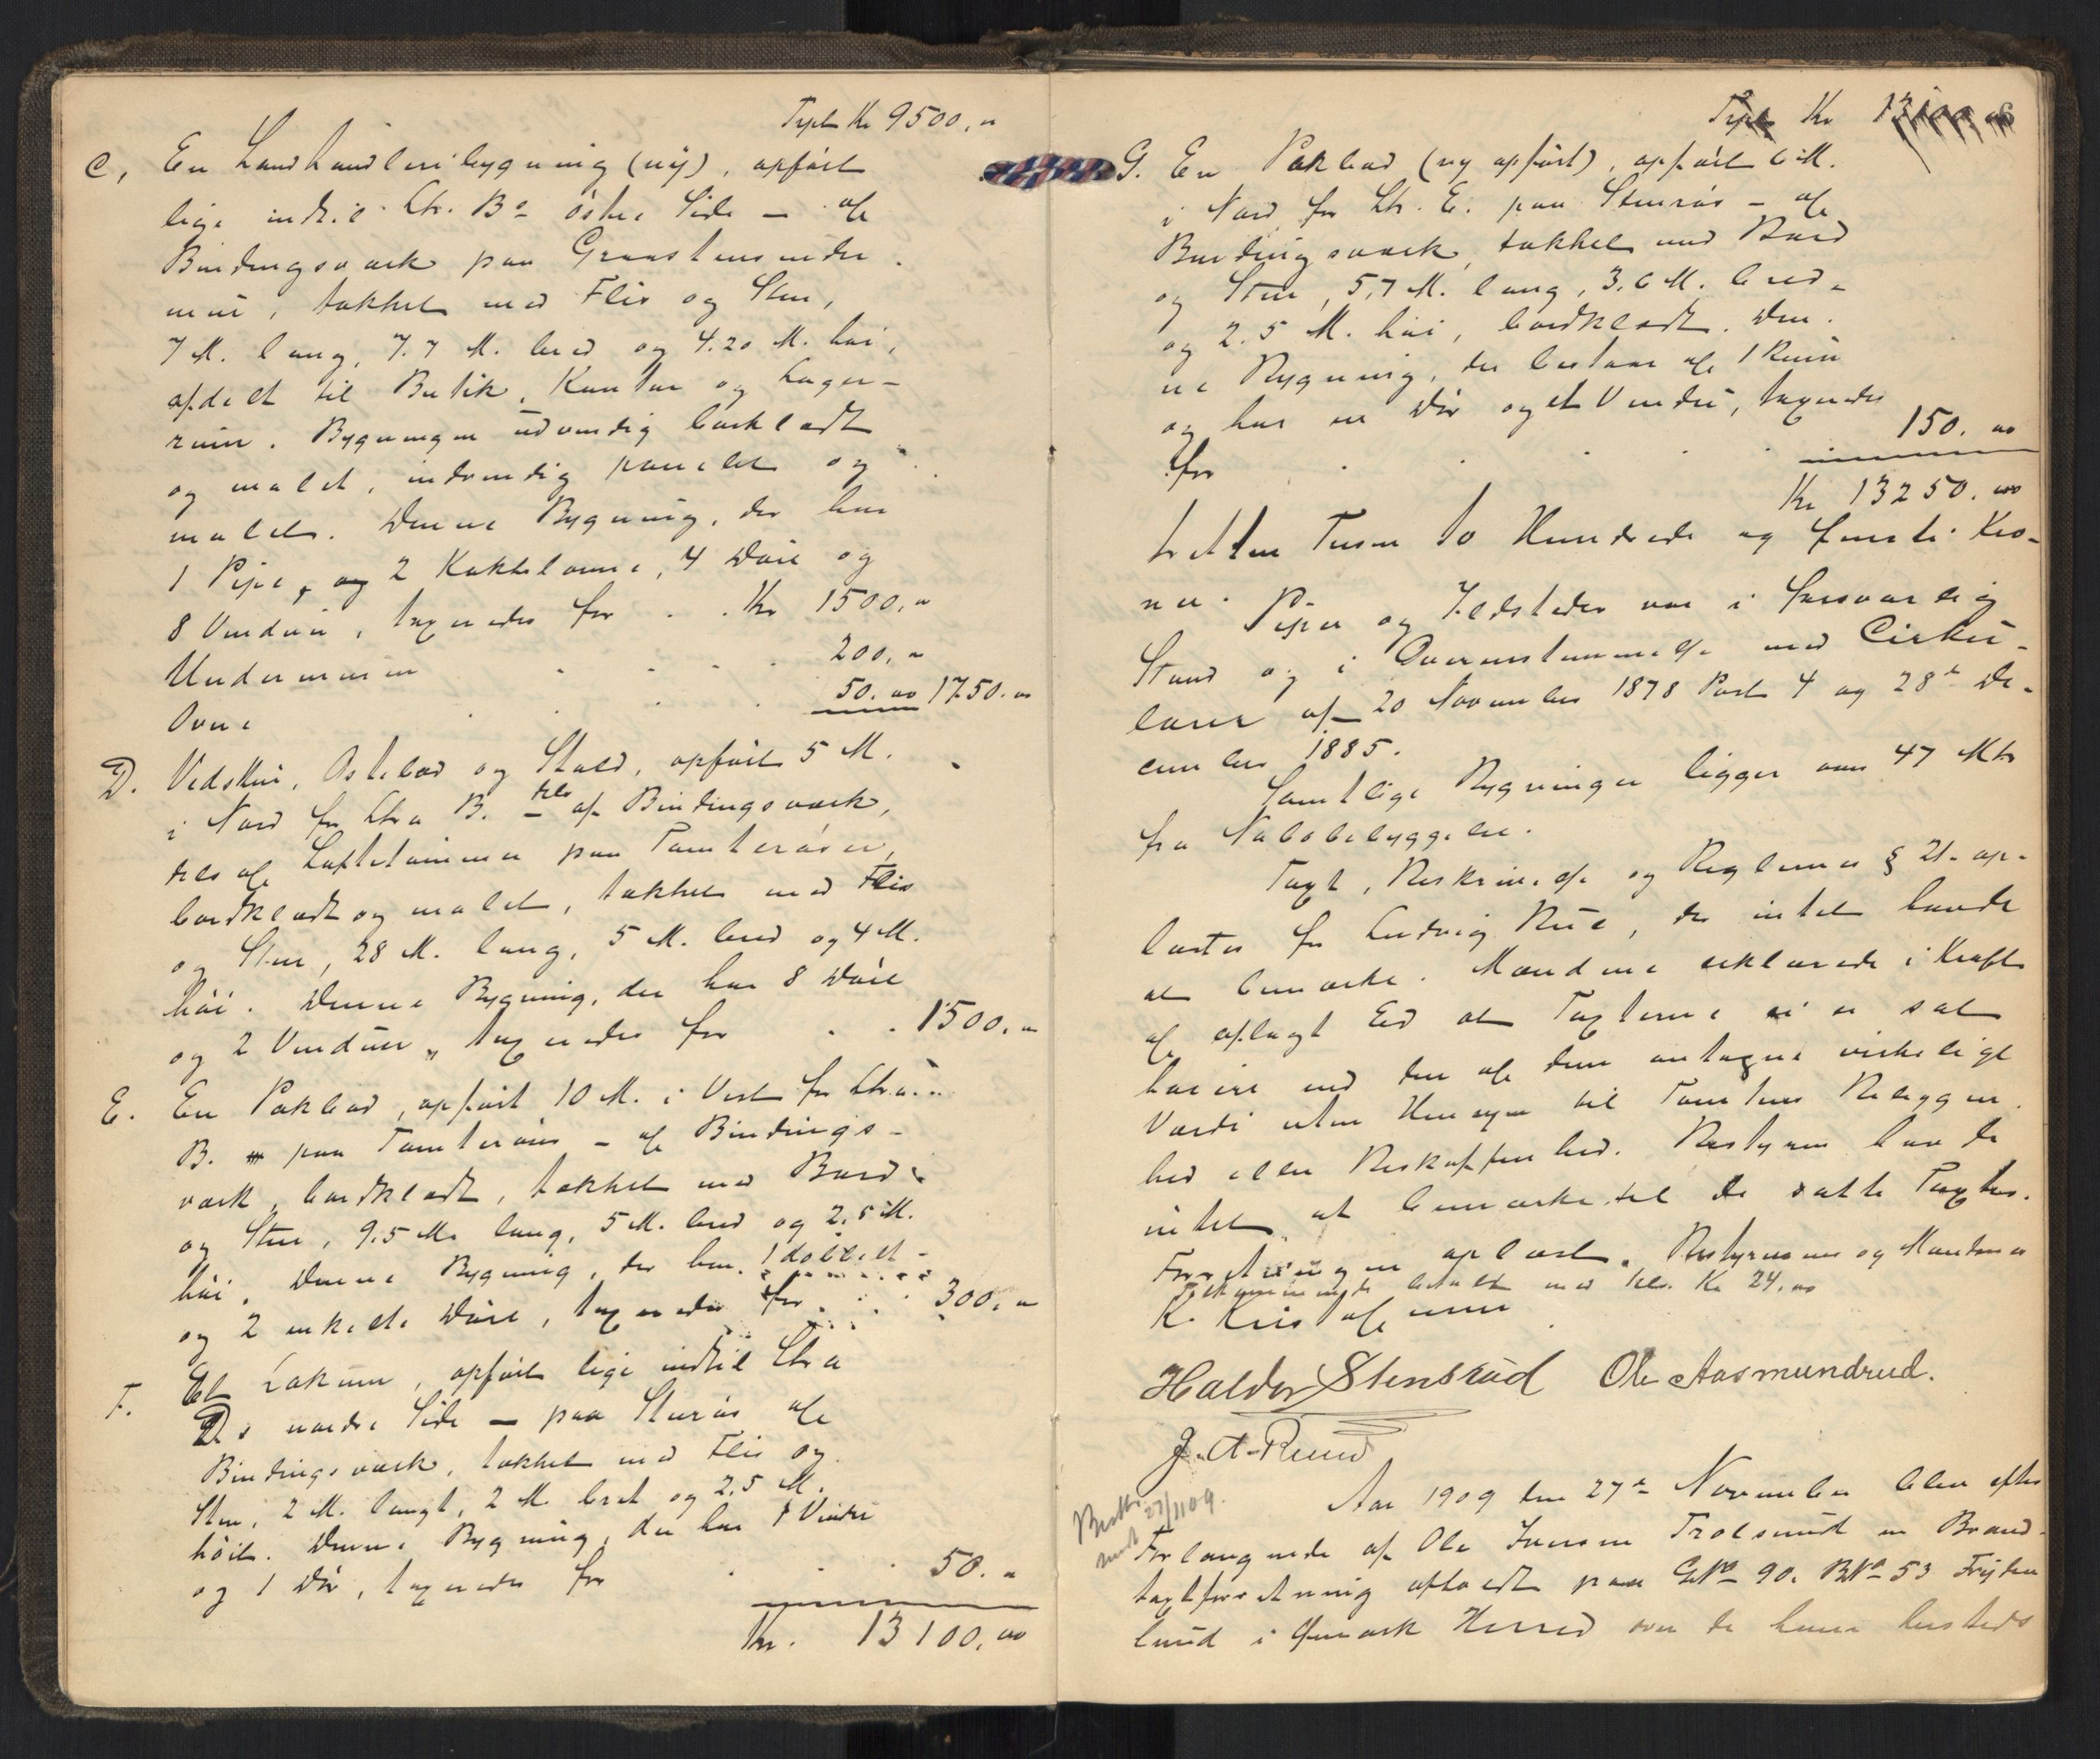 Trpt Kr 9500,"
C, En Landhandleribygning (ny), opført
lige indtil Ltr. Bs østre Side — af
Bindingsværk paa Graastensunder-
mur, tækket med Flis og Sten,
7 M. lang, 7.7 M. bred og 4.20 M. høi,
afdelt til Butik, Kontor og Lager-
rum. Bygningen udvendig bordklædt
og malet, indvendig panelet og
malet. Denne Bygning, der har
1 Pipe, og 2 Kakkelovne, 4 Døre og
8 Vinduer, taxeredes for . . Kr 1500,"
Undermuren . . . . 200,"
Ovne . . . . 50.00 1750.00
D. Vedskur, Ostebod og Stald, opført 5 M.
i Nord for Ltra B. — dels af Bindingsværk,
dels af Laftetømmer paa Tomterøser,
bordklædt og malet, tækket med Flis
og Sten, 28 M. lang, 5 M. bred og 4 M.
høi. Denne Bygning, der har 8 Døre
og 2 Vinduer, taxeredes for . . 1500."
E. En Pakbod, opført 10 M. i Vest for Ltra
B. paa Tomterøis — af Bindings-
værk, bordklædt, tækket med Bord
og Sten, 9.5 M. lang, 5 M. bred og 2,5 M.
høi. Denne Bygning, der har 1 dobbelt
og 2 enkelte Døre, taxeredes for . . . 300,"
F. Et Lokum, opført lige indtil Ltra
Ds nordre Side — paa Stenrøis af
Bindingsværk, tækket med Flis og
Sten, 2 M. langt, 2 M. bret og 2.5 M.
høit. Denne Bygning, der har 1 Vindu
og 1 Dør, taxeredes for . . . 50."
Kr. 13100,00
Trpt Kr 13100
G. En Pakbod (ny opført), opført 6 M.
i Nord for Ltr. E. paa Stenrøis — af
Bindingsværk, tækket med Bord
og Sten, 5,7 M. lang, 3.6 M. bred
og 2.5 M. høi, bordklædt. Den-
ne Bygning, der bestaar af 1 Rum
og har en Dør og et Vindu, taxeredes
for . . . . . 150.00
Kr 13250.00
tretten Tusen to Hundrede og femti Kro-
ner.
Piper og Ildsteder var i forsvarlig
Stand og i Overensstemmelse med Cirku-
lærer af 20 November 1878 Post 4 og 28de De-
cember 1885.
Samtlige Bygninger ligger over 47 Mtr
fra Nabobebyggelse.
Taxt, Beskrivelse og Reglernes § 21 op-
læstes for Ludvig Rue, der intet havde
at bemærke. Mændene erklærede i Kraft
af aflagt Ed at Taxterne ei er sat
høiere end den af dem antagne virkelige
Værdi uten Hensyn til Tomtens Beliggen-
hed eller Beskaffenhed. Bestyreren har
intet at bemærke til de satte Taxter.
Forretningen oplæst. Bestyrerens og Mændenes
Tilkommende betalt med tils. Kr 24.00
K. Kristoffersen
Haldor Stensrud Ole Aasmundrud.
J. A. Ruud
Aar 1909 den 27de November blev efter
Forlangende af Ole Iversen Trolsrud en Brand-
taxtforretning afholdt paa GNo 90. BNo 53 Fryden
lund i Herred over de hans hersteds
27/11 09.